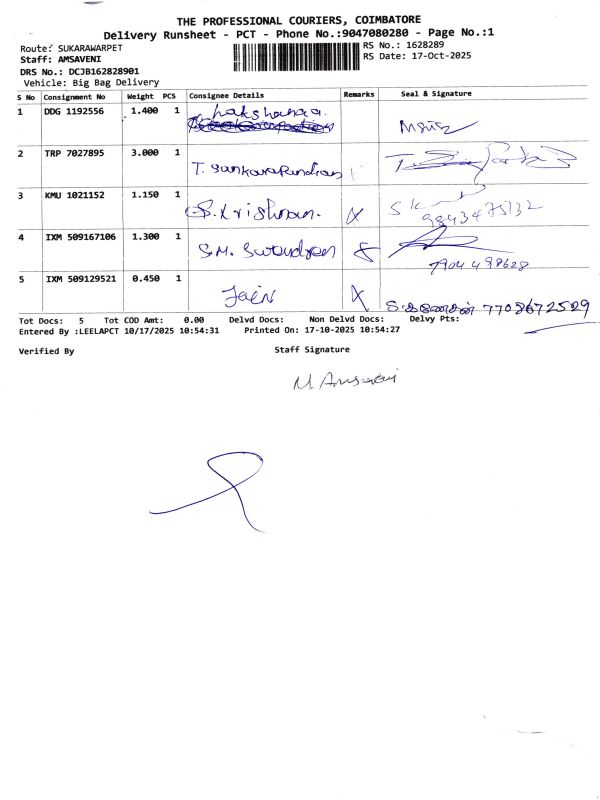 THE PROFESSIONAL COURIERS, COIMBATORE
Delivery Runsheet - PCT - Phone No.:9047080280 - Page No.:1
Route: SUKARAWARPET RS No.: 1628289
Staff: AMSAVENI RS Date: 17-Oct-2025
DRS No.: DCJB162828901
Vehicle: Big Bag Delivery
S No Consignment No Weight PCS Consignee Details Remarks Seal & Signature
1 DDG 1192556 1.400 1
2 TRP 7027895 3.000 1 T. Sankarapandian
3 KMU 1021152 1.150 1 S. Krishnan. 9843475132
4 IXM 509167106 1.300 1 S.M. 7904498628
5 IXM 509129521 0.450 1 Jain 7708672529
Tot Docs: 5 Tot COD Amt: 0.00 Delvd Docs: Non Delvd Docs: Delvy Pts:
Entered By :LEELAPCT 10/17/2025 10:54:31 Printed On: 17-10-2025 10:54:27
Verified By Staff Signature
M. Amsaveni